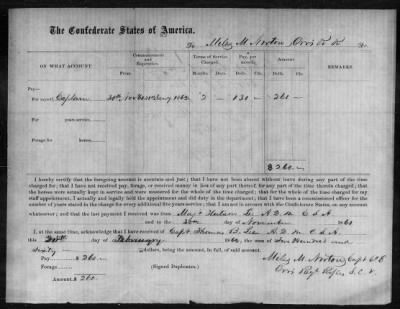 The Confederate States of America.
To Miles M. Norton Orrs Dr.
ON WHAT ACCOUNT.
Commencement and Expiration.
Terms of Service Charged.
Pay, per month.
Amount
REMARKS.
From. Months Days Dolls. Cts. Dolls. Cts.
Pay—
For myself, Captain 30th Nov 2 130 260
For years service,
Forage for horses,
$ 260
I hereby certify that the foregoing account is accurate and just; that I have not been absent without leave during any part of the
time charged for; that I have not received pay, forage, or received money in lieu of any part thereof, for any part of the time therein charged; that
the horses were actually kept in service and were mustered for the whole of the time charged; that for the whole of the time charged for my
staff appointment, I actually and legally held the appointment and did duty in the department; that I have been a commissioned officer for the
number of years stated in the charge for every additional five years service; that I am not in arrears with the Confederate States, on any account
whatsoever; and that the last payment I received was from A. D. M C S A
and to the 30th day of November 186
I, at the same time, acknowledge that I have received of Capt Thomas B. Lee A. D. M C. S. A.
this day of February 186 , the sum of Two Hundred and
Sixty dollars, being the amount, in full, of said account.
Pay $ 260
Forage
Amount $ 260
(Signed Duplicates.)
Miles M. Norton Capt
Orrs Regt Rifles S. C. V.